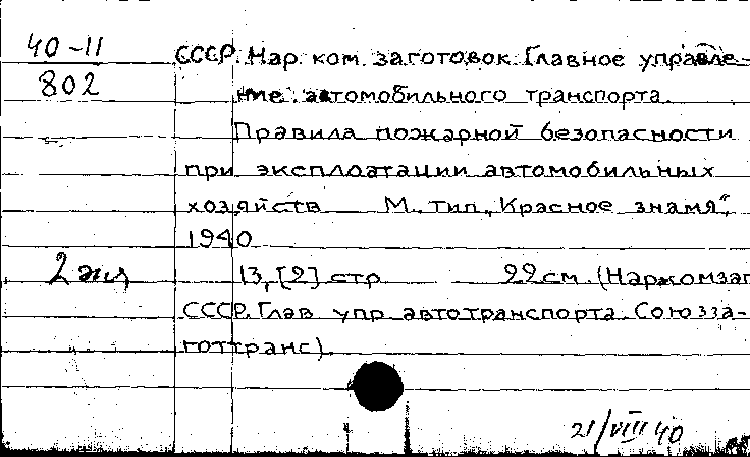 40-11
802
СССР. Нар. ком. заготовок. Главное управле-
ние автомобильного транспорта.
Правила пожарной безопасности
при эксплоатации автомобильных
хозяйств М., тип. „Красное знамя“,
1940
2 экз
13, [2] стр 22 см. (Наркомзаг
СССР. Глав. упр. автотранспорта. Союзза-
готтранс).
21/VIII 40